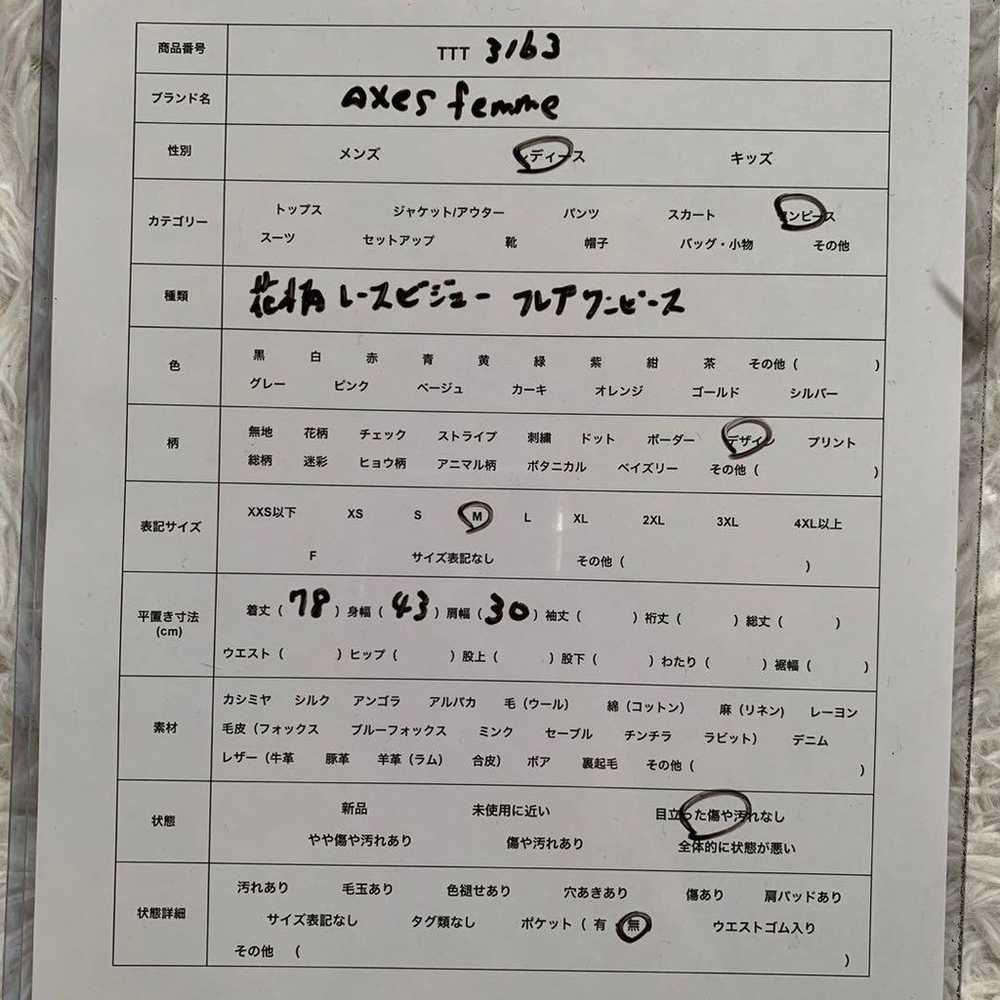 商品番号 TTT 3163
ブランド名 axes femme
性別 メンズ レディース キッズ
トップス ジャケット/アウター パンツ スカート ワンピース
カテゴリー
スーツ セットアップ 靴 帽子 バッグ・小物 その他
種類 花柄 レースビジュー フレアワンピース
黒 白 赤 青 黄 緑 紫 紺 茶 その他（ ）
色
グレー ピンク ベージュ カーキ オレンジ ゴールド シルバー
無地 花柄 チェック ストライプ 刺繍 ドット ボーダー デザイン プリント
柄
総柄 迷彩 ヒョウ柄 アニマル柄 ボタニカル ペイズリー その他（ ）
XXS以下 XS S M L XL 2XL 3XL 4XL以上
表記サイズ
F サイズ表記なし その他（ ）
平置き寸法 着丈（ 78 ）身幅（ 43 ）肩幅（ 30 ）袖丈（ ）裄丈（ ）総丈（ ）
(cm)
ウエスト（ ）ヒップ（ ）股上（ ）股下（ ）わたり（ ）裾幅（ ）
カシミヤ シルク アンゴラ アルパカ 毛（ウール） 綿（コットン） 麻（リネン） レーヨン
素材 毛皮（フォックス ブルーフォックス ミンク セーブル チンチラ ラビット） デニム
レザー（牛革 豚革 羊革（ラム） 合皮） ボア 裏起毛 その他（ ）
新品 未使用に近い 目立った傷や汚れなし
状態
やや傷や汚れあり 傷や汚れあり 全体的に状態が悪い
汚れあり 毛玉あり 色褪せあり 穴あきあり 傷あり 肩パッドあり
状態詳細 サイズ表記なし タグ類なし ポケット（ 有 無 ウエストゴム入り
その他 （ ）